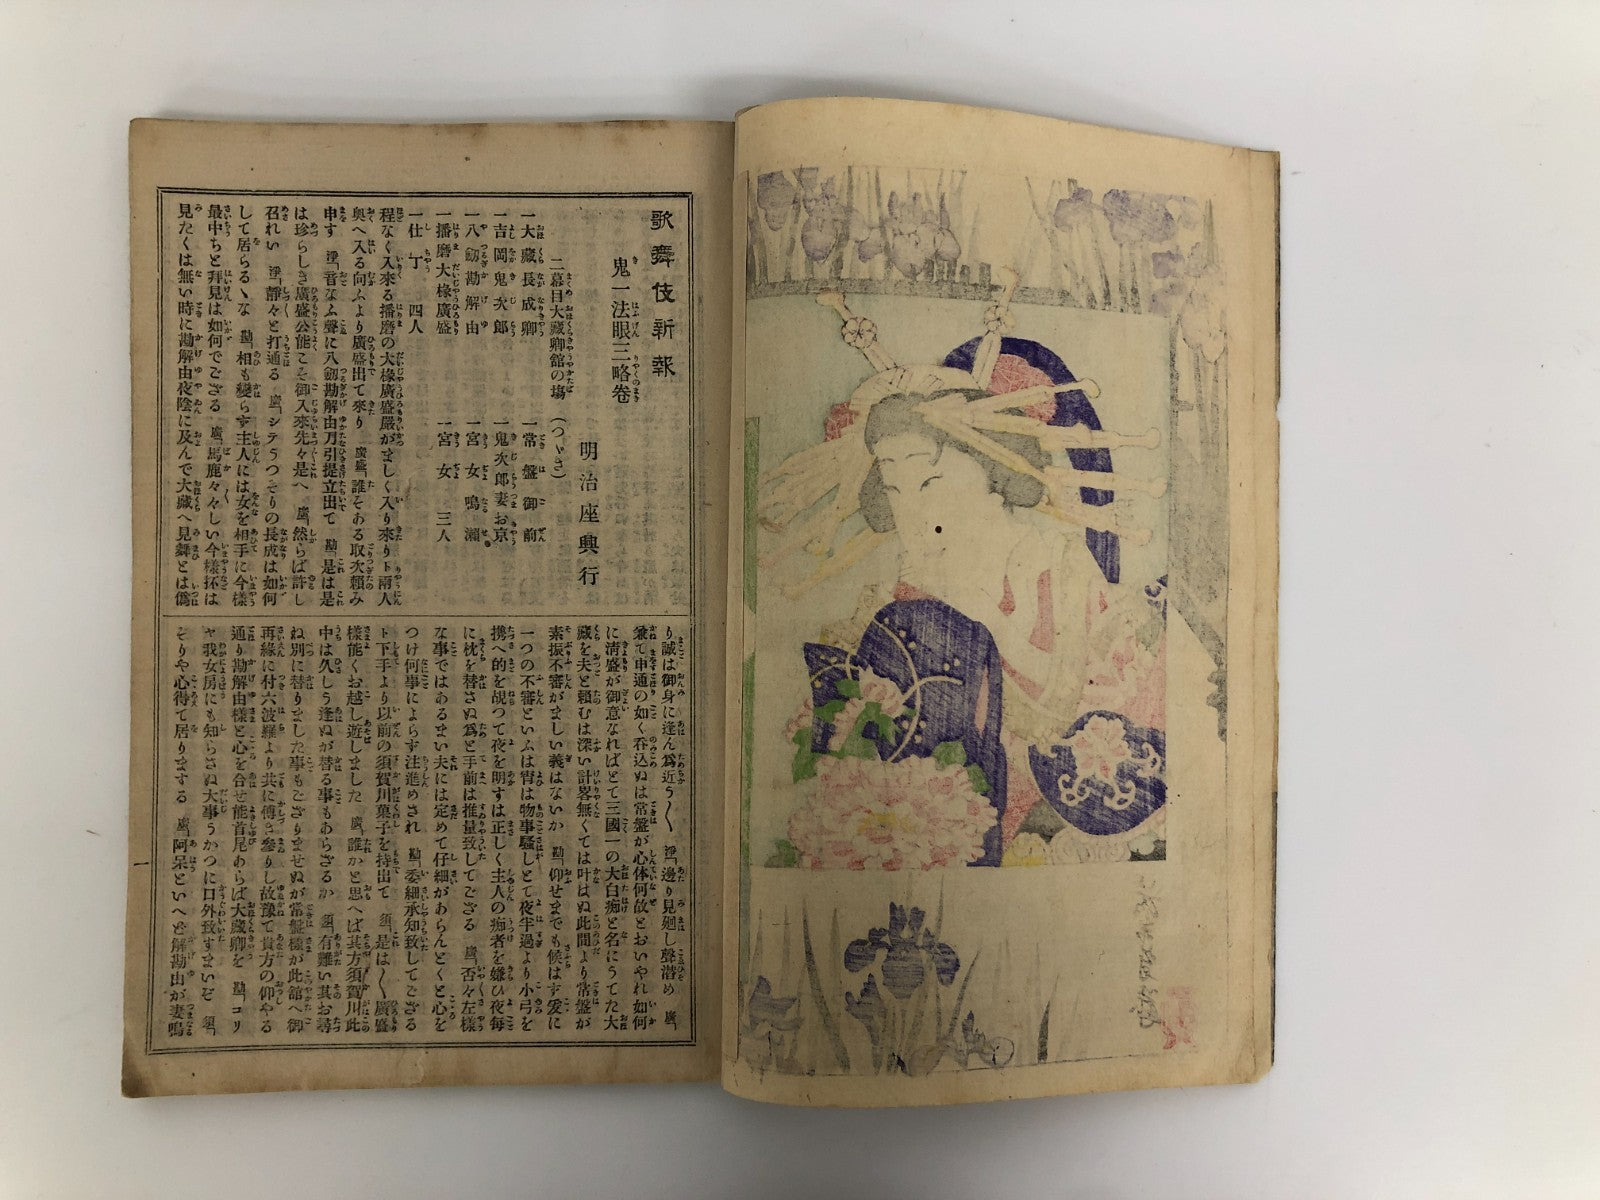 歌舞伎新報
鬼一法眼三略卷
明治座興行
二幕目大藏卿舘の塲 (つゞき)
一大藏長成卿 一常盤御前
一吉岡鬼次郎 一鬼次郎妻お京
一八劔勘解由 一宮女鳴瀬
一播磨大椽廣盛 一宮女 三人
一仕丁 四人
程なく入來る播磨の大椽廣盛嚴がましく入り來りト兩人
奥へ入る向ふより廣盛出て來り 廣盛「誰そある取次頼み
申す 淨「音なふ聲に八劔勘解由刀引提立出て 勘「是は是
は珍らしき廣盛公能こそ御入來先々是へ 廣「然らば許し
召れい 淨「靜々と打通る 廣「シテうつそりの長成は如何
して居らるゝな 勘「相も變らす主人には女を相手に今樣
最中ちと拜見は如何でござる 廣「馬鹿々々しい今樣抔は
見たくは無い時に勘解由夜陰に及んで大藏へ見舞とは僞
り誠は御身に逢ん爲近う〳〵 淨「邊り見廻し聲潜め 廣「
兼て申通の如く呑込ぬは常盤が心体何故とおいやれ如何
に淸盛が御意なればとて三國一の大白痴と名にうてた大
藏を夫と賴むは深い計畧無くては叶はぬ此間より常盤が
素振不審がましい義はないか 勘「仰せまでも候はす爰に
一つの不審といふは宵は物事騷しとて夜半過より小弓を
携へ的を覘つて夜を明すは正しく主人の痴者を嫌ひ夜每
に枕を替さぬ爲と手前は推量致してござる 廣「否々左樣
な事ではあるまい夫には定めて仔細があらんとくと心を
つけ何事によらす注進めされ 勘「委細承知致してござる
ト下手より以前の須賀川菓子を持出て 須「是は〳〵廣盛
樣能くお越し遊しました 廣「誰かと思へば其方須賀川此
中は久しう逢ぬが替る事もあらざるか 須「有難い其お尋
ね別に替りました事もござりませぬが常盤樣が此舘へ御
再緣に付六波羅より共に傅き參りし故豫て貴方の仰やる
通り勘解由樣と心を合せ能首尾あらば大藏卿を 勘「コリ
ヤ我女房にも知らさぬ大事うかつに口外致すまいぞ 須「
そりや心得て居りまする 廣「阿呆といへど解勘由が妻鳴